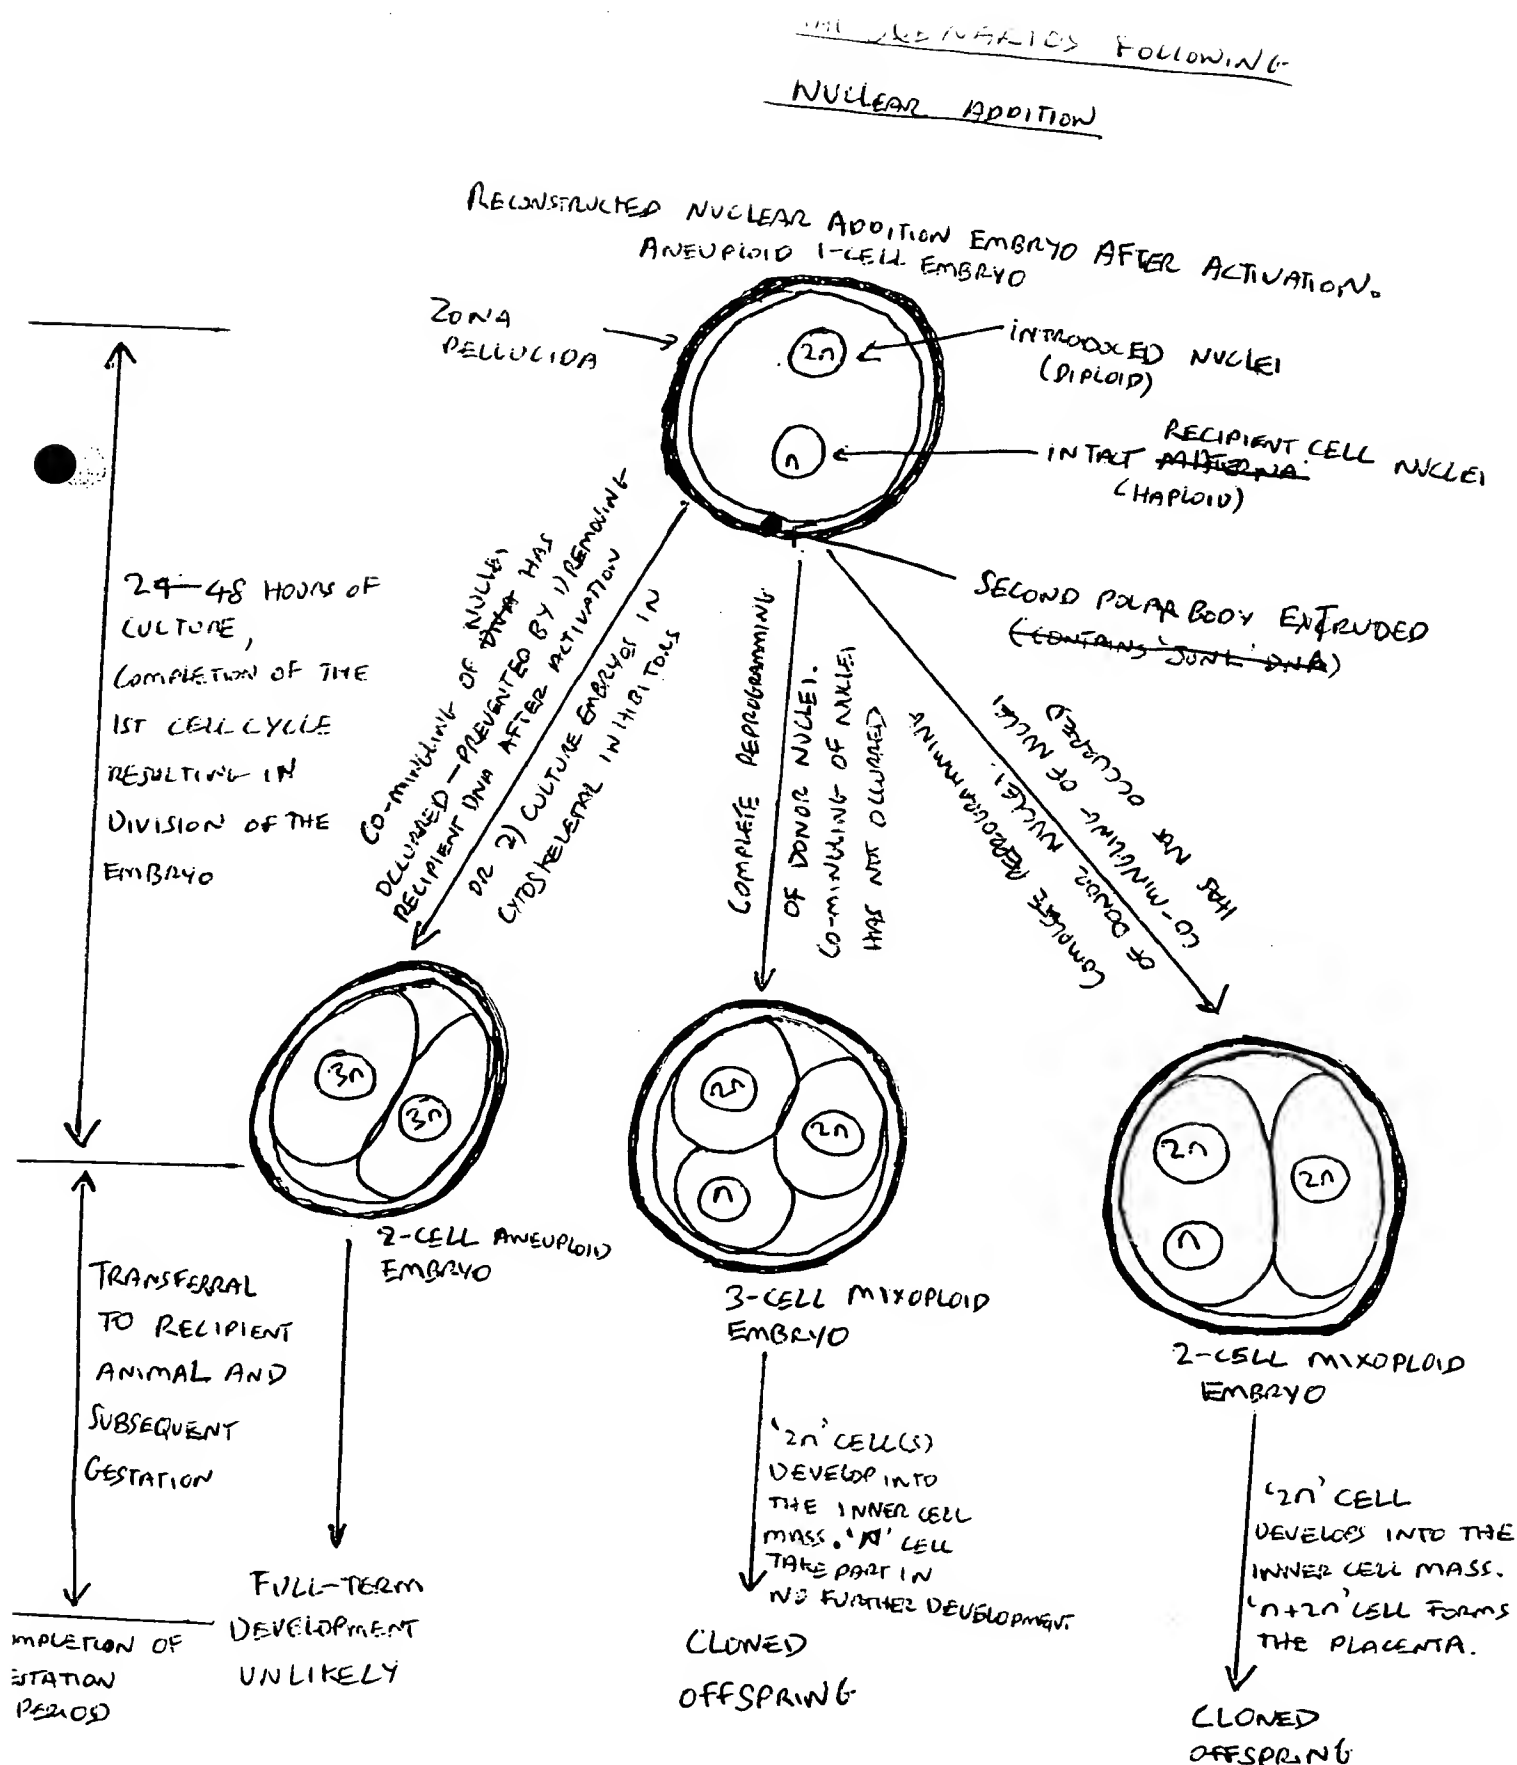 SCENARIOS FOLLOWING
NUCLEAR ADDITION
RECONSTRUCTED NUCLEAR ADDITION EMBRYO AFTER ACTIVATION.
ANEUPLOID 1-CELL EMBRYO
ZONA
PELLUCIDA
2n
INTRODUCED NUCLEI
(DIPLOID)
n
RECIPIENT CELL NUCLEI
INTACT MATERNA
(HAPLOID)
SECOND POLAR BODY EXTRUDED
(CONTAINS 'JUNK' DNA)
24-48 HOURS OF
CULTURE,
COMPLETION OF THE
1ST CELL CYCLE
RESULTING IN
DIVISION OF THE
EMBRYO
NUCLEI
CO-MINGLING OF DNA HAS
OCCURRED - PREVENTED BY 1) REMOVING
RECIPIENT DNA AFTER ACTIVATION
OR 2) CULTURE EMBRYOS IN
CYTOSKELETAL INHIBITORS
COMPLETE REPROGRAMMING
OF DONOR NUCLEI.
CO-MINGLING OF NUCLEI
HAS NOT OCCURRED
COMPLETE REPROGRAMMING
OF DONOR NUCLEI.
CO-MINGLING OF NUCLEI
HAS NOT OCCURRED
3n
3n
2n
2n
n
2n
2n
n
2-CELL ANEUPLOID
EMBRYO
3-CELL MIXOPLOID
EMBRYO
2-CELL MIXOPLOID
EMBRYO
TRANSFERRAL
TO RECIPIENT
ANIMAL AND
SUBSEQUENT
GESTATION
'2n' CELL(S)
DEVELOP INTO
THE INNER CELL
MASS. 'N' CELL
TAKE PART IN
NO FURTHER DEVELOPMENT.
'2n' CELL
DEVELOPS INTO THE
INNER CELL MASS.
'n+2n' CELL FORMS
THE PLACENTA.
FULL-TERM
DEVELOPMENT
UNLIKELY
CLONED
OFFSPRING
CLONED
OFFSPRING
MPLETION OF
STATION
PERIOD